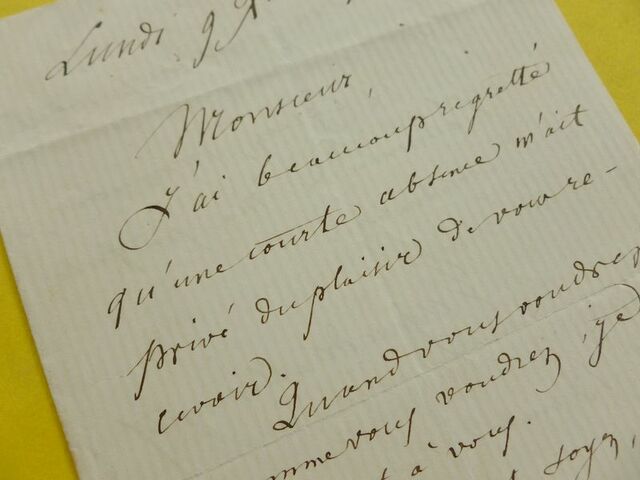 Lundi 9 X
Monsieur,
J'ai beaucoup regretté
qu'une courte absence m'ait
privé du plaisir de vous re-
cevoir.
Quand vous voudrez
comme vous voudrez, je
à vous.
soyez,